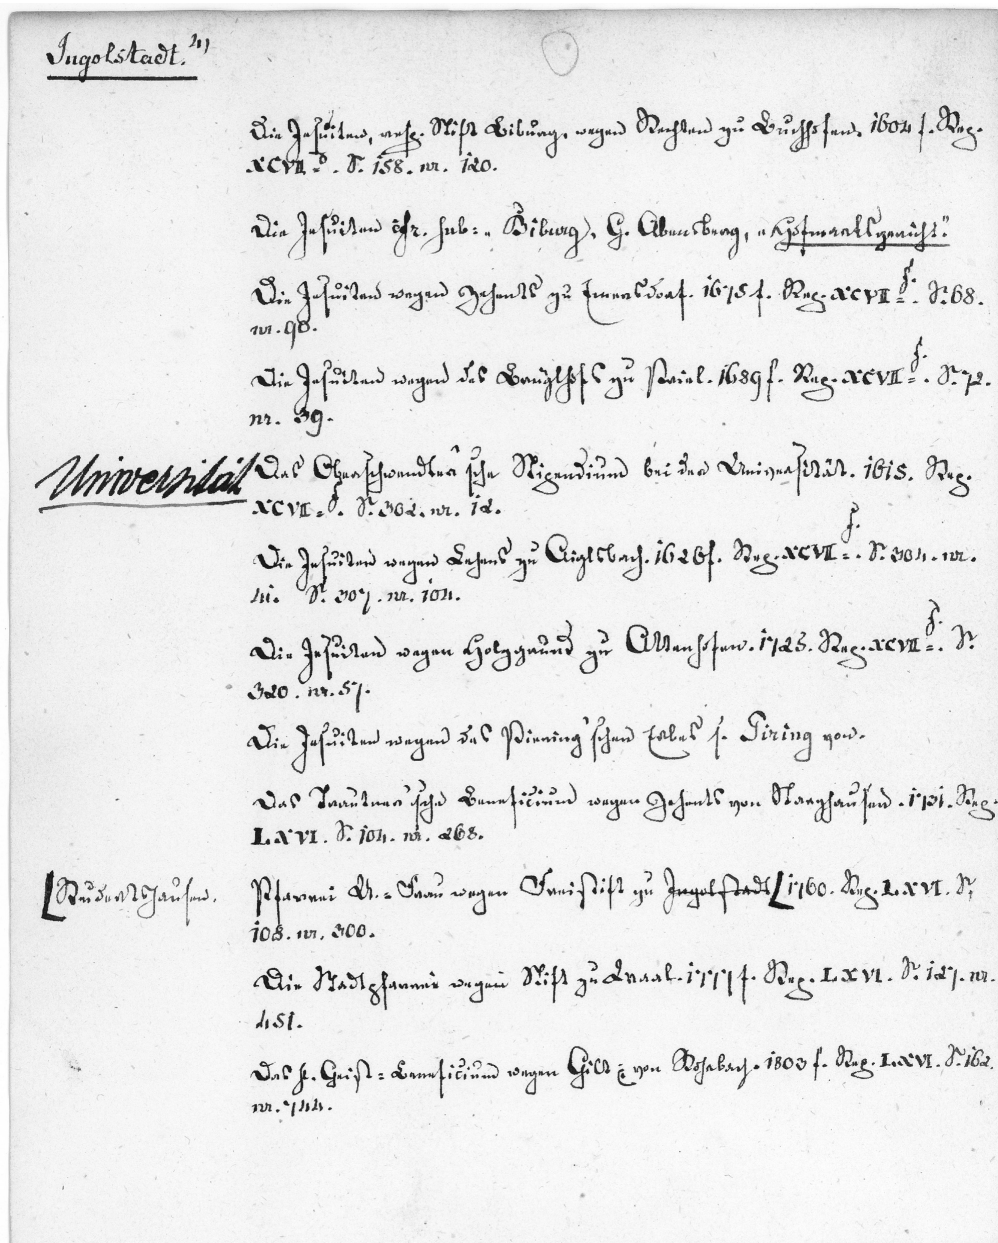 Ingolstadt. 41
Die Jesuiten, resp. Stift Biburg, wegen Rechten zu Buchhofen. 1604 f. Rep.
XCVII d. S. 158. nr. 120.
Die Jesuiten hab: Biburg, G. Abensberg, "Hofmarksgericht."
Die Jesuiten wegen Zehents zu 1675 f. Rep. XCVII f. S. 68.
nr. 98.
Die Jesuiten wegen des zu 1689 f. Rep. XCVII f. S. 72.
nr. 39.
Universität
Das Oberschwendler'sche Stipendium bei der Universität. 1615. Rep.
XCVII f. S. 302. nr. 12.
Die Jesuiten wegen Lehens zu Aiglsbach. 1626 f. Rep. XCVII f. S. 304. nr.
41. S. 307. nr. 104.
Die Jesuiten wegen Holzgrund zu Attenhofen. 1725. Rep. XCVII f. S.
320. nr. 57.
Die Jesuiten wegen des schen Erbes s. Tiring von.
Das Trautner'sche Beneficium wegen Zehents von Starzhausen. 1731. Rep.
LXVI. S. 104. nr. 268.
Pfarrei U. L. Frau wegen Freistift zu Ingolstadt 1760. Rep. LXVI. S.
108. nr. 300.
Rudertshausen.
Die Stadtpfarrei wegen Stift zu Kraal. 1777 f. Rep. LXVI. S. 127. nr.
451.
Das hl. Geist-Beneficium wegen Gilt von Rohrbach. 1803 f. Rep. LXVI. S. 162.
nr. 744.